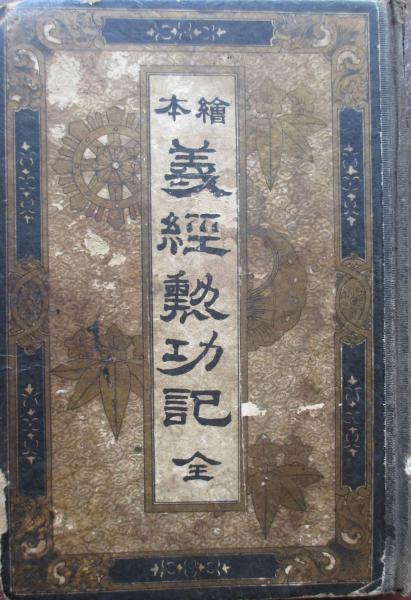 繪本
義經勲功記
全